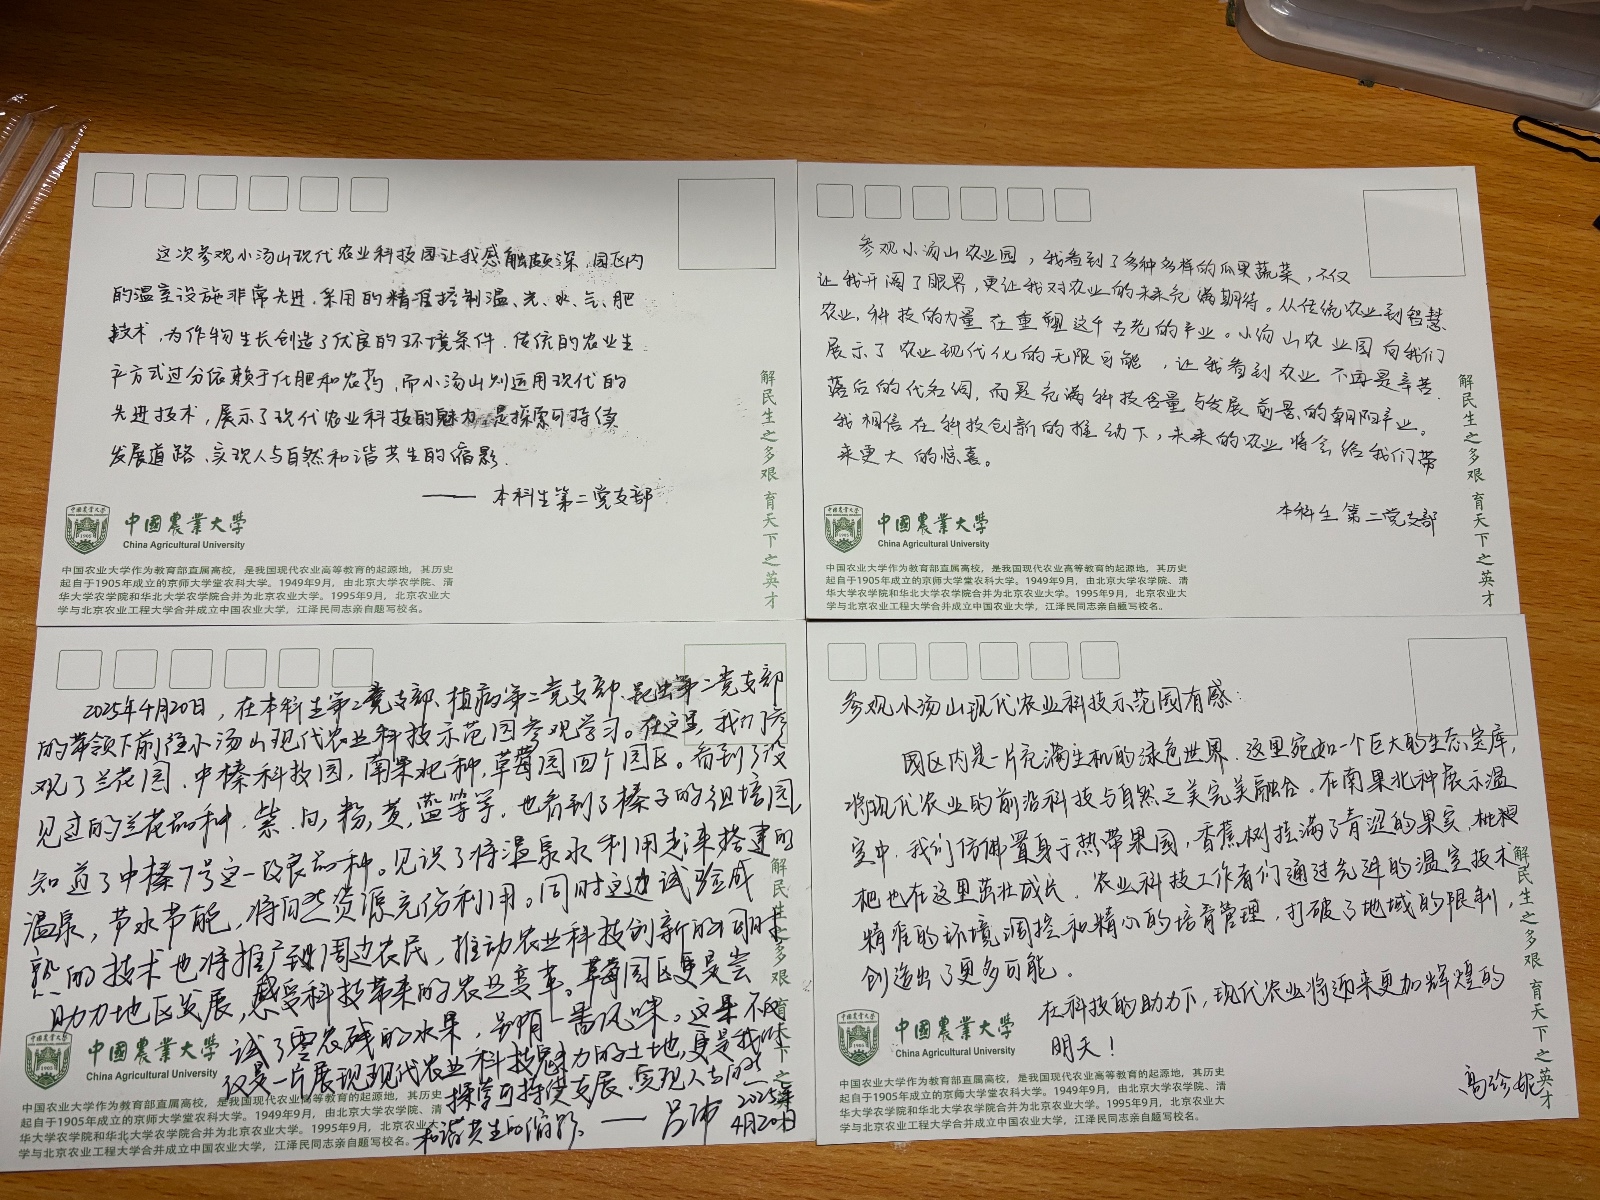 这次参观小汤山现代农业科技园让我感触颇深，园区内
的温室设施非常先进，采用的精准控制温、光、水、气、肥
技术，为作物生长创造了优良的环境条件，传统的农业生
产方式过分依赖于化肥和农药，而小汤山则运用现代的
先进技术，展示了现代农业科技的魅力，是探索可持续
发展道路、实现人与自然和谐共生的缩影。
—— 本科生第二党支部
中國農業大學
China Agricultural University
中国农业大学作为教育部直属高校，是我国现代农业高等教育的起源地，其历史
起自于1905年成立的京师大学堂农科大学。1949年9月，由北京大学农学院、清
华大学农学院和华北大学农学院合并为北京农业大学。1995年9月，北京农业大
学与北京农业工程大学合并成立中国农业大学，江泽民同志亲自题写校名。
解民生之多艰 育天下之英才
参观小汤山农业园，我看到了多种多样的瓜果蔬菜，不仅
让我开阔了眼界，更让我对农业的未来充满期待。从传统农业到智慧
农业，科技的力量在重塑这个古老的产业。小汤山农业园向我们
展示了农业现代化的无限可能，让我看到农业不再是辛苦、
落后的代名词，而是充满科技含量与发展前景的朝阳产业。
我相信在科技创新的推动下，未来的农业将会给我们带
来更大的惊喜。
本科生第二党支部
中國農業大學
China Agricultural University
中国农业大学作为教育部直属高校，是我国现代农业高等教育的起源地，其历史
起自于1905年成立的京师大学堂农科大学。1949年9月，由北京大学农学院、清
华大学农学院和华北大学农学院合并为北京农业大学。1995年9月，北京农业大
学与北京农业工程大学合并成立中国农业大学，江泽民同志亲自题写校名。
解民生之多艰 育天下之英才
2025年4月20日，在本科生第二党支部、植病第二党支部、昆虫第二党支部
的带领下前往小汤山现代农业科技示范园参观学习。在这里，我们参
观了兰花园，中榛科技园，南果北种，草莓园四个园区。看到了没
见过的兰花品种，紫，白，粉，黄，蓝等等，也看到了榛子的组培园，
知道了中榛7号这一改良品种。见识了将温泉水利用起来搭建的
温泉，节水节能，将自然资源充份利用。同时这边试验成
熟的技术也将推广到周边农民，推动农业科技创新的同时
助力地区发展，感受科技带来的农业变革。草莓园区更是尝
试了零农残的水果，别有一番风味。这里不
仅是一片展现现代农业科技魅力的土地，更是我
探索可持续发展、实现人与自然
和谐共生的缩影。—— 吕沛 2025年
4月20日
中國農業大學
China Agricultural University
中国农业大学作为教育部直属高校，是我国现代农业高等教育的起源地，其历史
起自于1905年成立的京师大学堂农科大学。1949年9月，由北京大学农学院、清
华大学农学院和华北大学农学院合并为北京农业大学。1995年9月，北京农业大
学与北京农业工程大学合并成立中国农业大学，江泽民同志亲自题写校名。
解民生之多艰 育天下之
参观小汤山现代农业科技示范园有感：
园区内是一片充满生机的绿色世界，这里宛如一个巨大的生态宝库，
将现代农业的前沿科技与自然之美完美融合。在南果北种展示温
室中，我们仿佛置身于热带果园，香蕉树挂满了青涩的果实，枇杷
杷也在这里茁壮成长，农业科技工作者们通过先进的温室技术、
精准的环境调控和精心的培育管理，打破了地域的限制，
创造出了更多可能。
在科技的助力下，现代农业将迎来更加辉煌的
明天！
高珍妮
中國農業大學
China Agricultural University
中国农业大学作为教育部直属高校，是我国现代农业高等教育的起源地，其历史
起自于1905年成立的京师大学堂农科大学。1949年9月，由北京大学农学院、清
华大学农学院和华北大学农学院合并为北京农业大学。1995年9月，北京农业大
学与北京农业工程大学合并成立中国农业大学，江泽民同志亲自题写校名。
解民生之多艰 育天下之英才